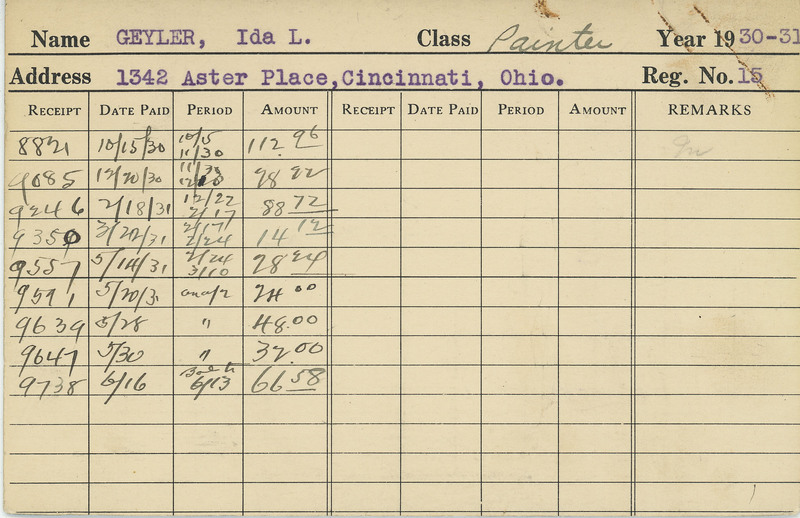 Name GEYLER, Ida L. Class Painter Year 1930-31
Address 1342 Aster Place, Cincinnati, Ohio. Reg. No. 15
RECEIPT DATE PAID PERIOD AMOUNT RECEIPT DATE PAID PERIOD AMOUNT REMARKS
8821 10/15/30 10/5 11/30 112.96
9085 12/20/30 11/30 98 82
9246 2/18/31 12/22 2/17 88 72
9350 3/20/31 2/17 2/24 14 12
9557 5/14/31 2/24 3/10 28 24
9591 5/20/31 24 00
9639 5/28 " 48.00
9647 5/30 " 32.00
9738 6/16 6/13 66 58